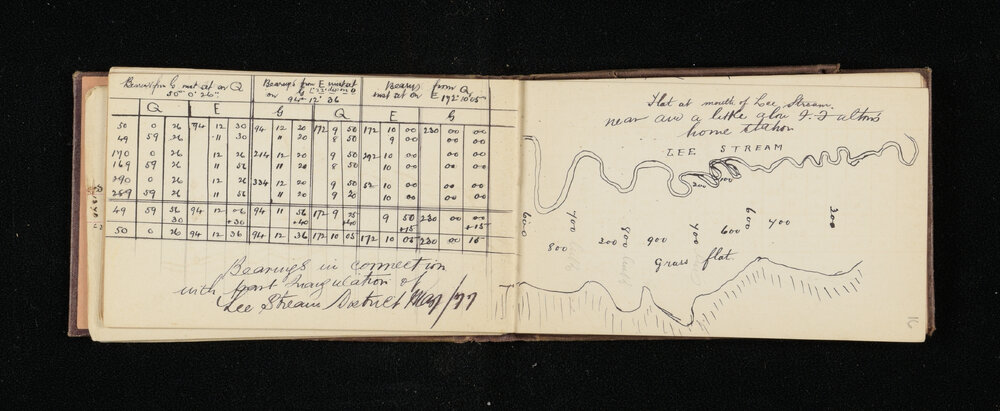 Bearings from G inst set on Q
50° 0' 26"
Bearings from E inst set
on G
94° 12' 36
Bearings from Q
inst set on E 172° 10' 05"
Q E G Q E G
50 0 26 94 12 30 94 12 20 172 9 50 172 10 00 230 00 00
49 59 26 " 11 30 " 20 8 50 9 00 00 00
170 0 26 12 26 214 12 20 9 50 292 10 00 00 00
169 59 26 11 56 " 20 8 50 10 00 00 00
290 0 26 12 26 334 12 20 9 50 52 10 00 00 00
289 59 26 11 56 " 20 9 20 10 00 00
49 59 56 94 12 06 94 11 56 172 9 25 9 50 230 00 00
30 +30 +40 +40 +15 +15
50 0 26 94 12 36 94 12 36 172 10 05 172 10 05 230 00 15
Bearings in connection
with part Triangulation of
Lee Stream District May/77
Flat at mouth of Lee Stream
near and a little above J. Fultons
home station
LEE STREAM
200 100
600 400 600 300
800 200 800 900 400 600 400
Grass flat
16